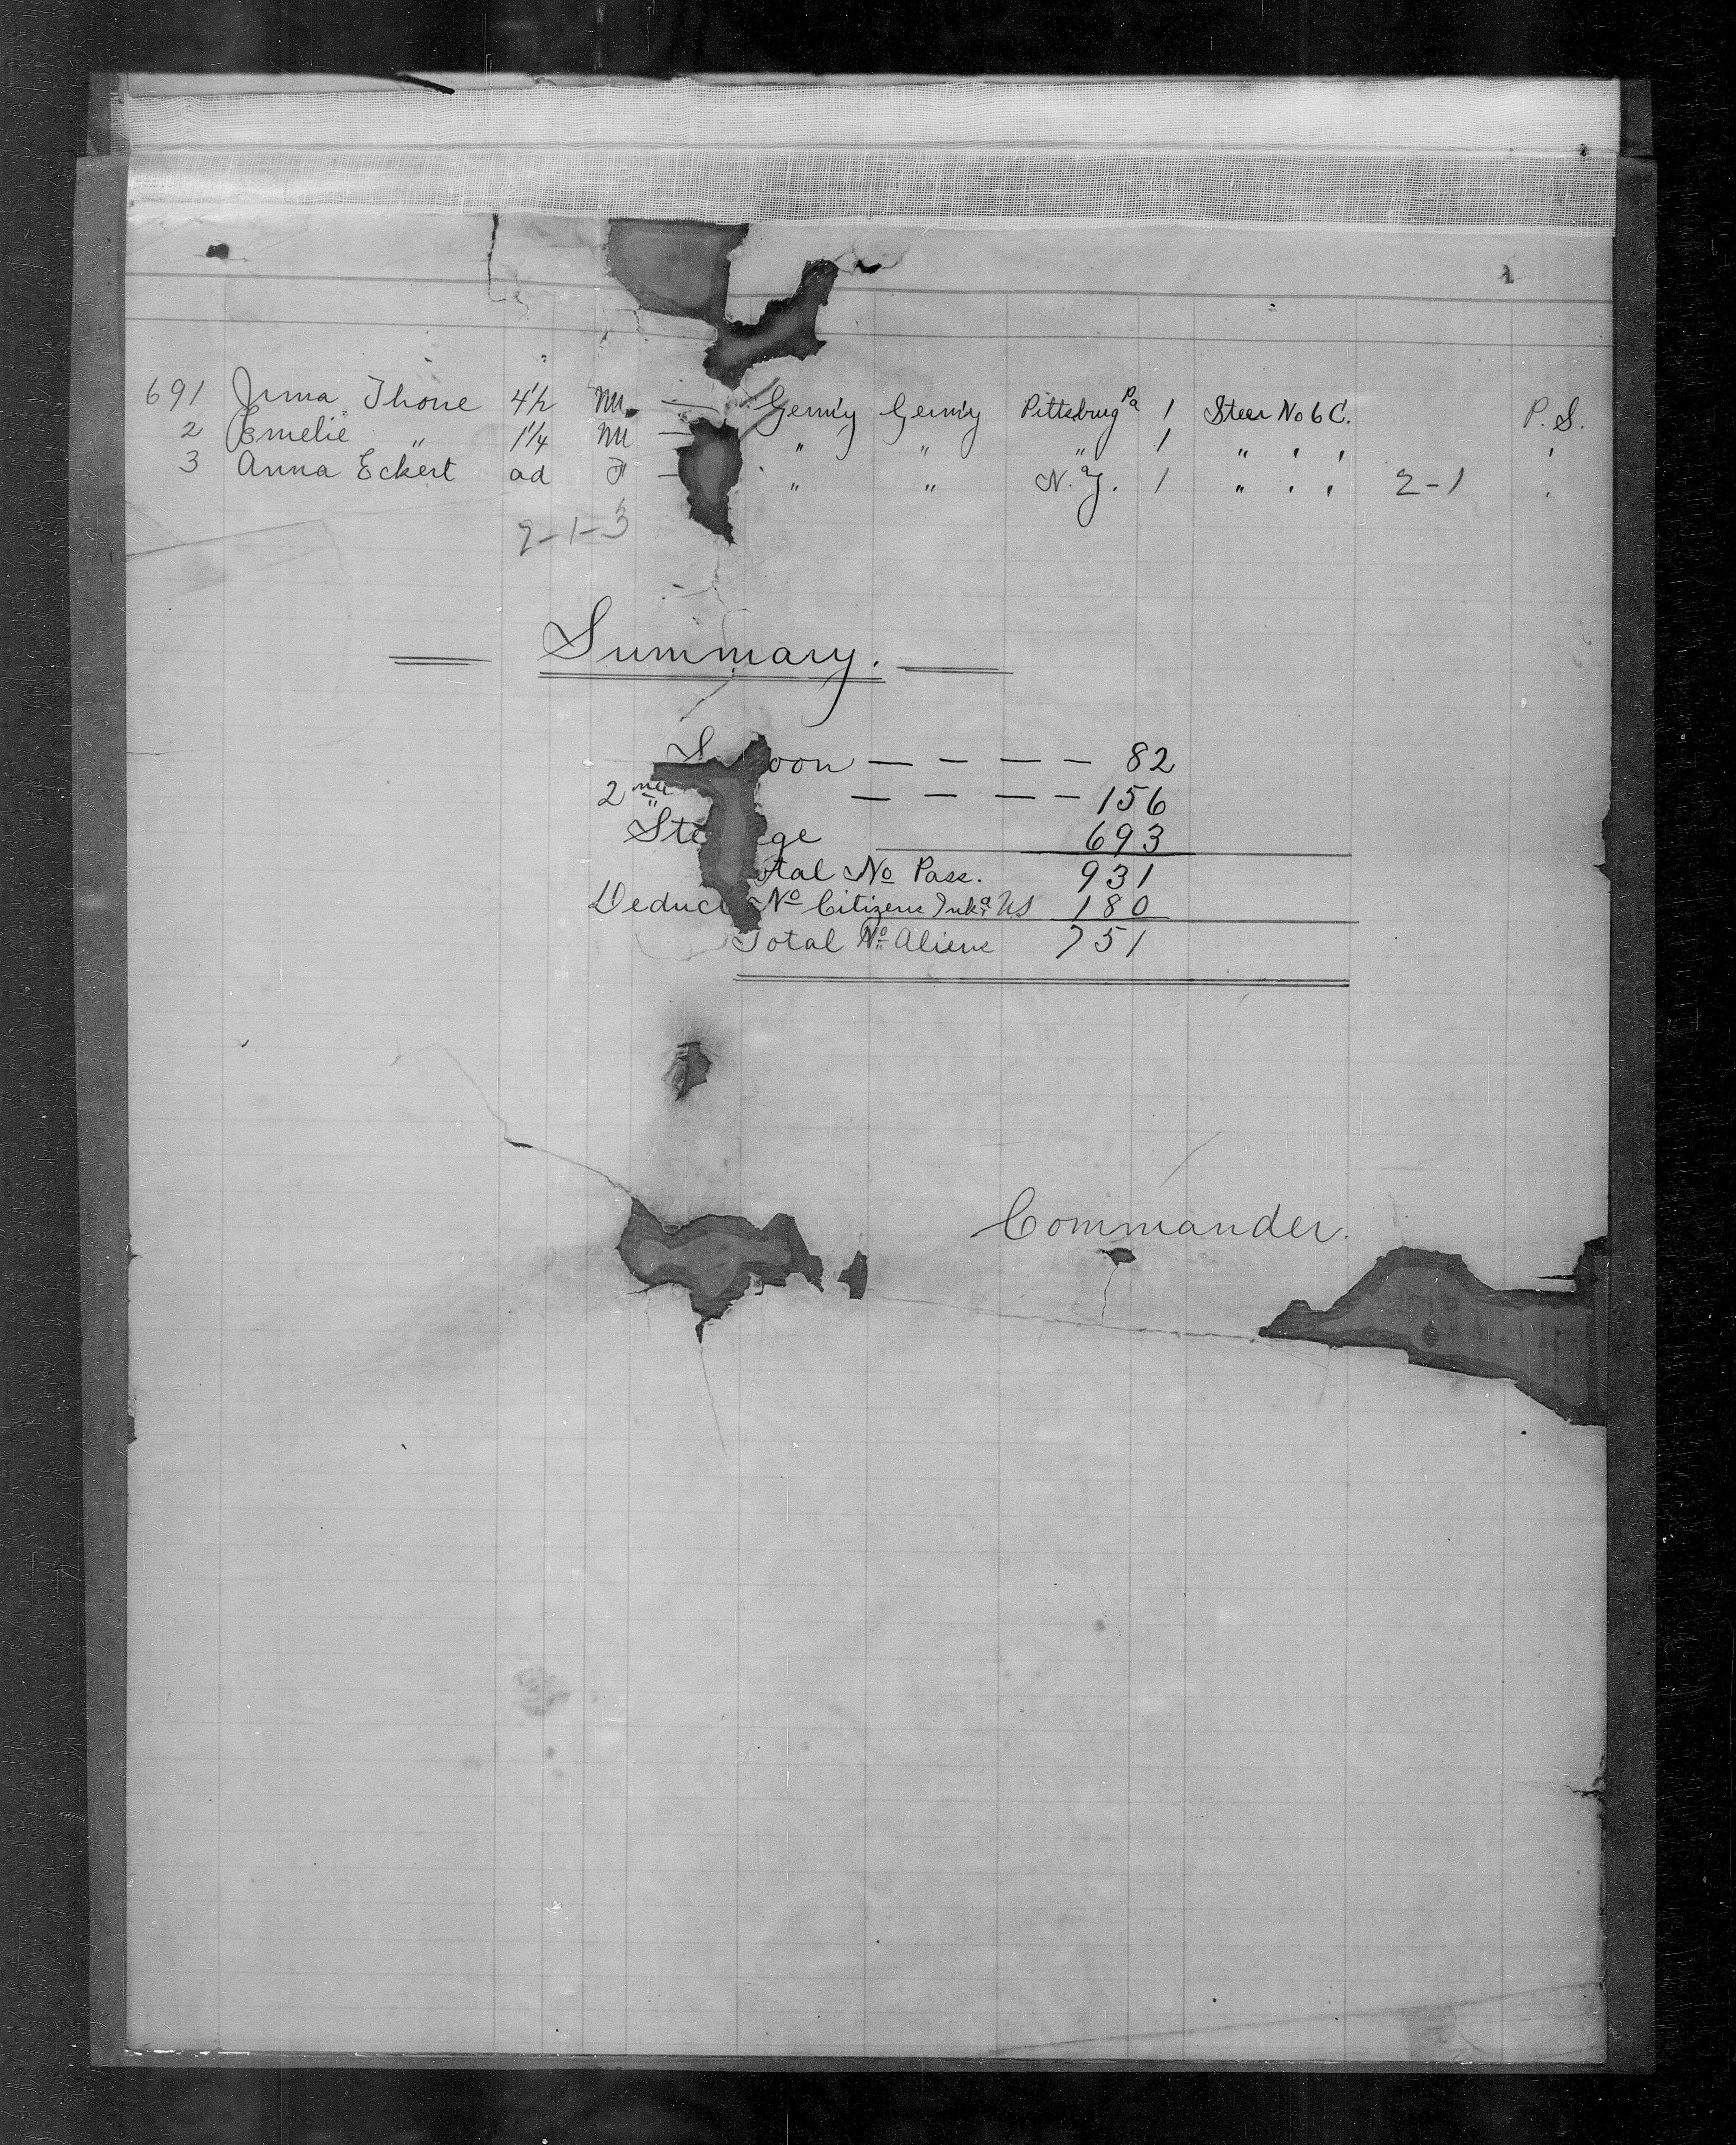 691 Irma Thone 4½ M — Germ'y Germ'y Pittsburg Pa 1 Steer No 6 C. P. S.
2 Emelie " 1¼ M — " " " 1 " ' ' '
3 Anna Eckert ad F — " " N.Y. 1 " ' ' 2-1 '
2-1-3
Summary.
S oon — — — — 82
2nd — — — — 156
Ste ge 693
otal No Pass. 931
Deduct No Citizens US 180
Total No Aliens 751
Commander.